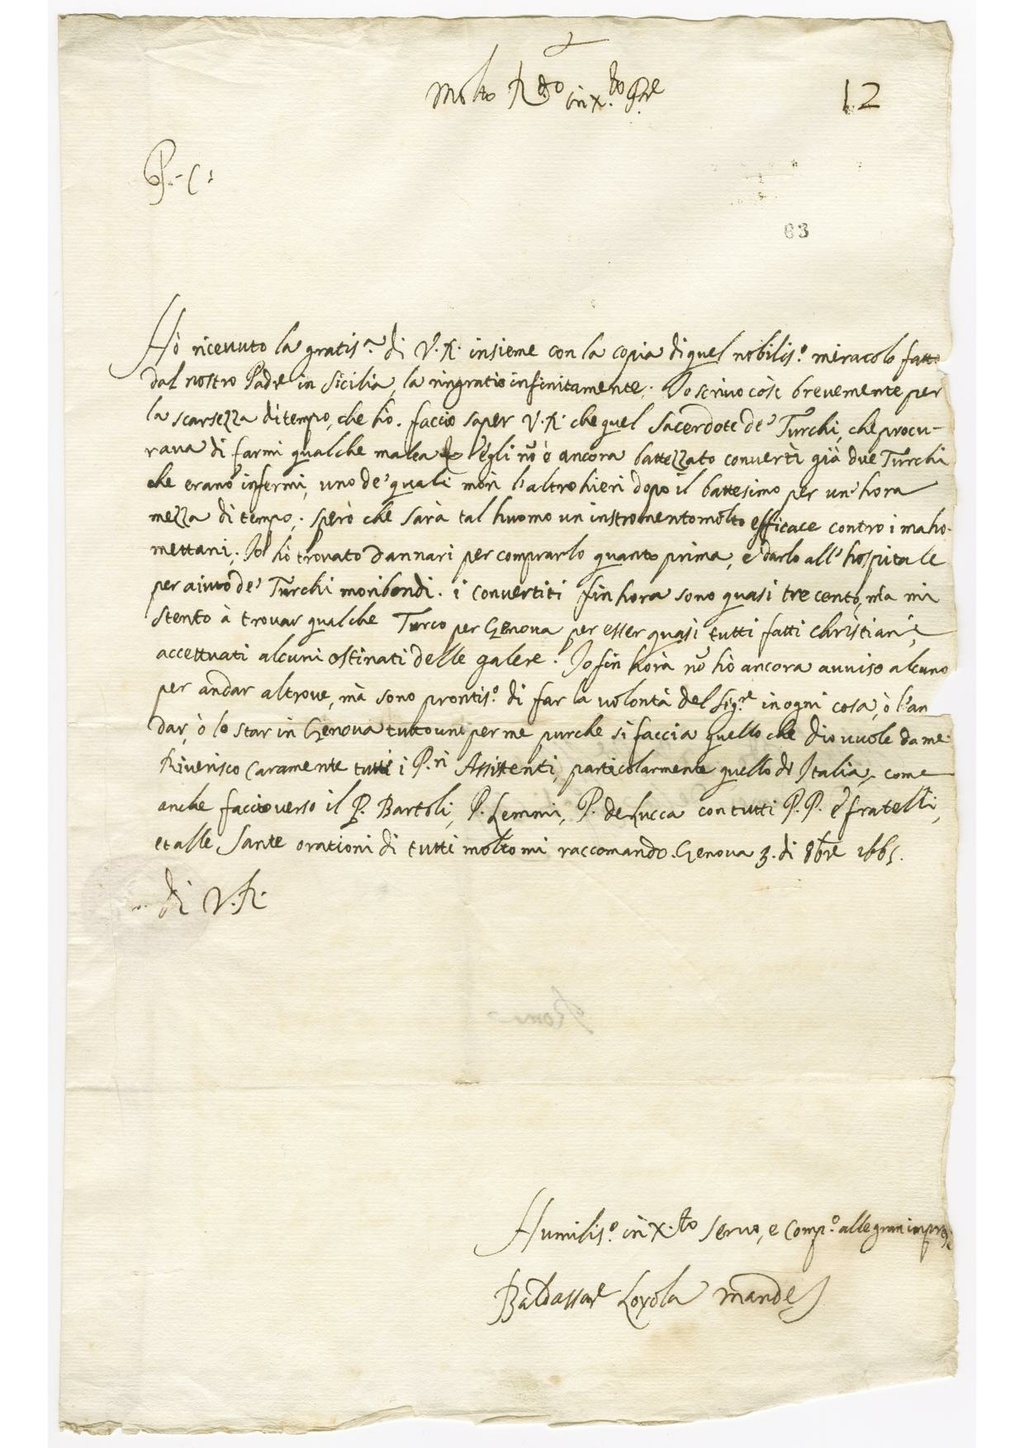 Molto R.do in X.to P.re
12
P. C.
63
Hò riceuuto la gratis.a di V.R. insieme con la copia di quel nobilis.o miracolo fatto
dal nostro Padre in Sicilia, la ringratio infinitamente. Io scriuo così breuemente per
la scarsezza di tempo, che hò. faccio saper V.R. che quel Sacerdote de' Turchi, che procu-
raua di farmi qualche malea egli nō è ancora battezzato conuertì già due Turchi
che erano infermi, uno de' quali morì l'altrohieri dopò il battesimo per un' hora
mezza di tempo, sperò che sarà tal huomo un instromento molto efficace contro i maho-
mettani; Io hò trouato dannari per comprarlo quanto prima, e darlo all' hospitale
per aiuto de' Turchi moribondi. i conuertiti fin hora sono quasi trecento, ma mi
stento à trouar qualche Turco per Genoua per esser quasi tutti fatti christiani,
accettuati alcuni ostinati delle galere. Io fin hora nō hò ancora auuiso alcuno
per andar altroue, mà sono prontis.o di far la volontà del Sig.re in ogni cosa, ò l'an
dar, ò lo star in Genoua tutto uni per me purche si faccia quello che Dio uuole da me.
Riuerisco caramente tutti i P.ri Assistenti, particolarmente quello di Italia, come
anche faccio verso il P. Bartoli, P. Lemmi, P. de Lucca con tutti P.P. e fratelli,
et alle Sante orationi di tutti molto mi raccomando. Genoua 3. di 8bre 1665.
di V.R.
Roma
Humilis.o in X.to seruo, e Comp.o alle gran
Baldassar Loyola Mandes